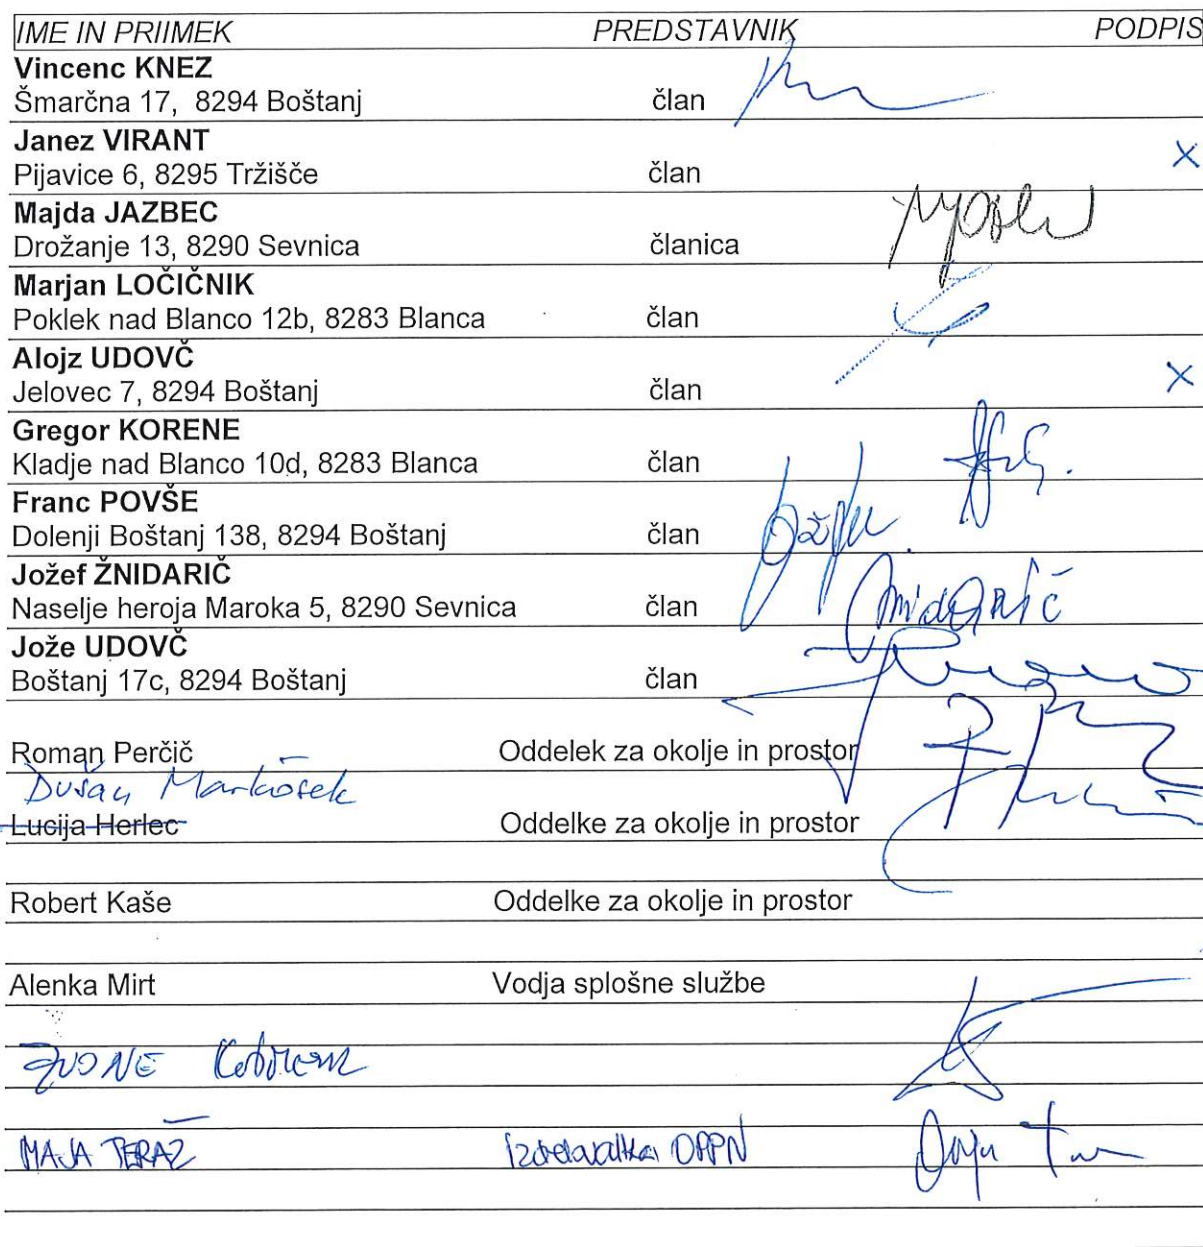 IME IN PRIIMEK PREDSTAVNIK PODPIS
Vincenc KNEZ
Šmarčna 17, 8294 Boštanj član
Janez VIRANT
Pijavice 6, 8295 Tržišče član X
Majda JAZBEC
Drožanje 13, 8290 Sevnica članica
Marjan LOČIČNIK
Poklek nad Blanco 12b, 8283 Blanca član
Alojz UDOVČ
Jelovec 7, 8294 Boštanj član X
Gregor KORENE
Kladje nad Blanco 10d, 8283 Blanca član
Franc POVŠE
Dolenji Boštanj 138, 8294 Boštanj član
Jožef ŽNIDARIČ
Naselje heroja Maroka 5, 8290 Sevnica član
Jože UDOVČ
Boštanj 17c, 8294 Boštanj član
Roman Perčič Oddelek za okolje in prostor
Dušan Markošek
Lucija Herlec Oddelke za okolje in prostor
Robert Kaše Oddelke za okolje in prostor
Alenka Mirt Vodja splošne službe
ZVONE
MAJA TERAŽ izdelovalka OPPN